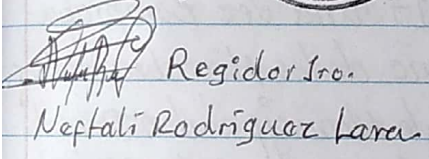 Regidor Iro.
Neftalí Rodríguez Lara.